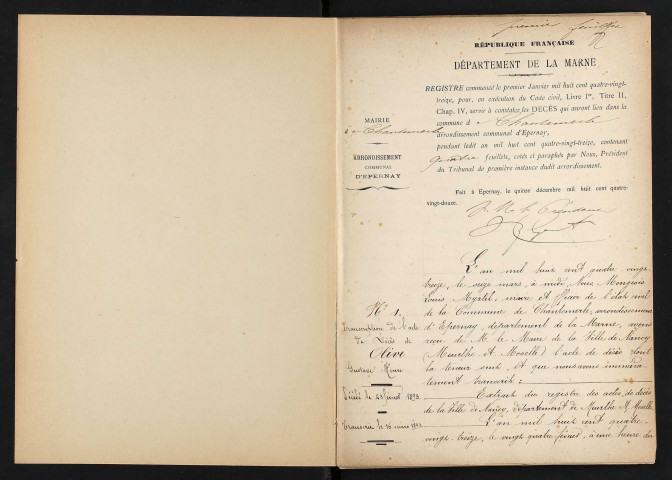 premier feuillet
RÉPUBLIQUE FRANÇAISE
DÉPARTEMENT DE LA MARNE
REGISTRE commencé le premier Janvier mil huit cent quatre-vingt-
treize, pour, en exécution du Code civil, Livre Ier, Titre II,
Chap. IV, servir à constater les DÉCÈS qui auront lieu dans la
commune d e Chantemerle
arrondissement communal d'Epernay,
pendant ledit an mil huit cent quatre-vingt-treize, contenant
quatre feuillets, cotés et paraphés par Nous, Président
du Tribunal de première instance dudit arrondissement.
Fait à Epernay, le quinze décembre mil huit cent quatre-
vingt-douze.
MAIRIE
d e Chantemerle
ARRONDISSEMENT
COMMUNAL
D'EPERNAY
L'an mil huit cent quatre vingt
treize, le seize mars, à midi, Nous
Louis Myrtil, maire et officier de l'état civil
de la Commune de Chantemerle, arrondissement
d'Epernay, département de la Marne, avons
reçu de M. le Maire de la Ville de Nancy
(Meurthe et Moselle) l'acte de décès dont
la teneur suit, et que nous avons immédia-
tement transcrit :
Extrait du registre des actes de décès
de la Ville de Nancy, département de Meurthe et Moselle
L'an mil huit cent quatre-
vingt-treize, le vingt quatre février, à une heure du
No 1.
Transcription de l'acte
de Décès de
Olive
Gustave
Décédé le 23 février 1893
Transcrit le 16 mars 1893